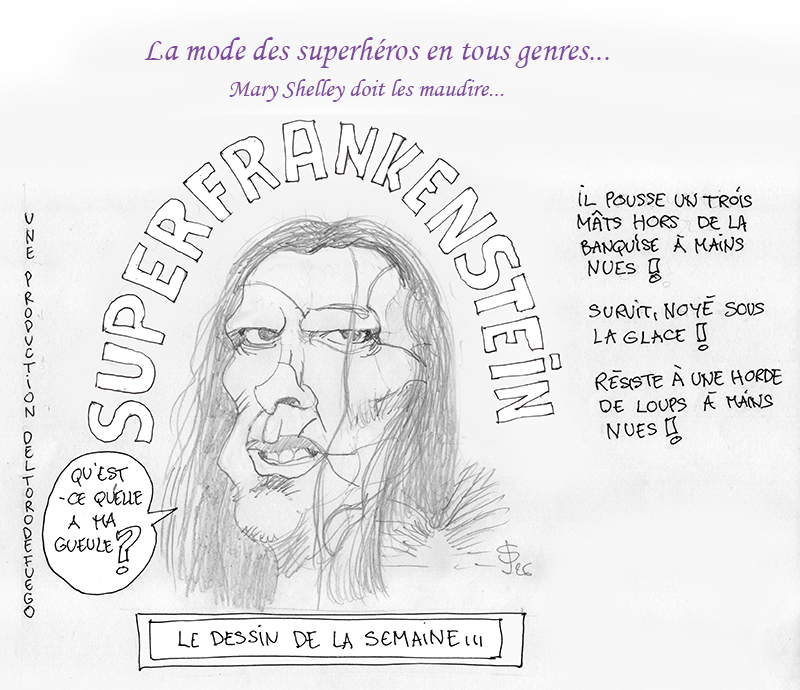 La mode des superhéros en tous genres...
Mary Shelley doit les maudire...
SUPERFRANKENSTEIN
UNE PRODUCTION DELTORODEFUEGO
IL POUSSE UN TROIS
MÂTS HORS DE LA
BANQUISE À MAINS
NUES !
SURVIT, NOYÉ SOUS
LA GLACE !
RÉSISTE À UNE HORDE
DE LOUPS À MAINS
NUES !
QU'EST
-CE QU'ELLE
A MA
GUEULE ?
26
LE DESSIN DE LA SEMAINE!!!